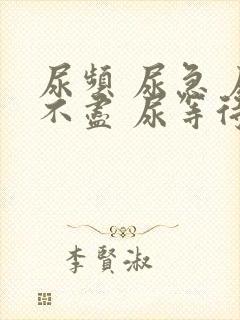 尿頻 尿急
不盡 尿等待
李賢淑